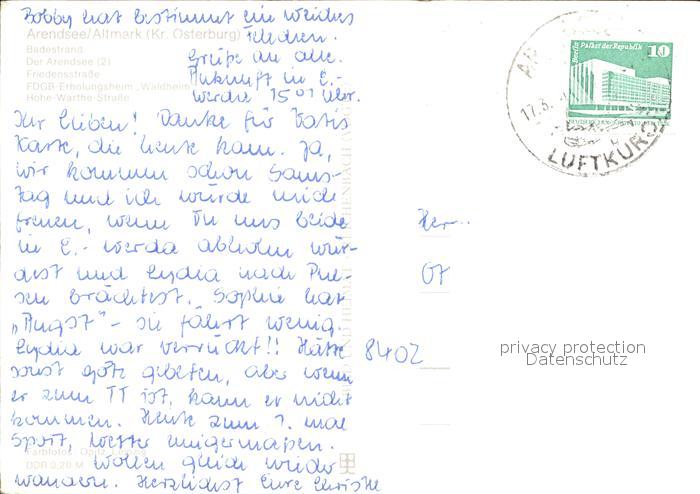 Bobby hat bestimmt ein weiches
Arendsee/Altmark (Kr. Osterburg)
Badestrand
Der Arendsee (2)
Friedensstraße
FDGB-Erholungsheim „Waldheim
Hohe-Warthe-Straße
Grüße an alle.
Ankunft in E.-
werda 1501 Uhr.
Ihr Lieben! Danke für Vatis
Karte, die heute kam. Ja,
wir kommen schon Sams-
tag und ich würde mich
freuen, wenn Du uns beide
in E.-werda abholen wür-
dest und Lydia nach
brächtest. Sophie hat
„Angst“ - sie fährt wenig.
Lydia war verrückt!! Hätte
sonst Götz gebeten, aber wenn
er zum TT ist, kann er nicht
kommen. Heute zum 1. mal
Sport, Wetter einigermaßen.
Wollen gleich wieder
wandern. Herzlichst Eure Christle
Farbfoto: Opitz, Leipzig
DDR 0,20 M
Berlin Palast der Republik
10
17.8.
LUFTKUR
Her
OT
8402
privacy protection
Datenschutz